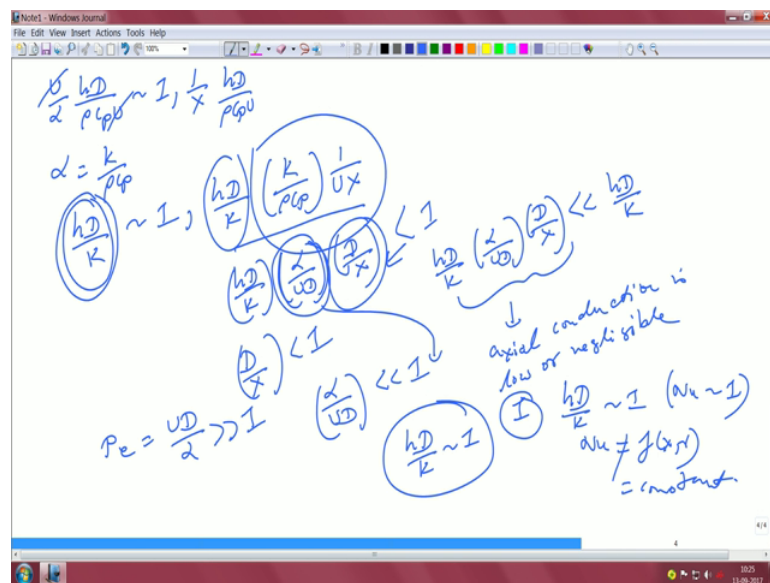 Note1 - Windows Journal
File Edit View Insert Actions Tools Help
100%
B I
U/α hD/ρCpU ~ 1, 1/x hD/ρCpU
α = k/ρCp
hD/K ~ 1, hD/K (K/ρCp) 1/Ux
(hD/K) (α/UD) (D/x) < 1
hD/K (α/UD) (D/x) << hD/K
axial conduction is
low or negligible
(D/x) < 1
(α/UD) << 1
Pe = UD/α >> 1
hD/K ~ 1
I hD/K ~ 1 (Nu ~ 1)
Nu ≠ f(x,r)
= constant.
4/4
4
10:25
13-09-2017